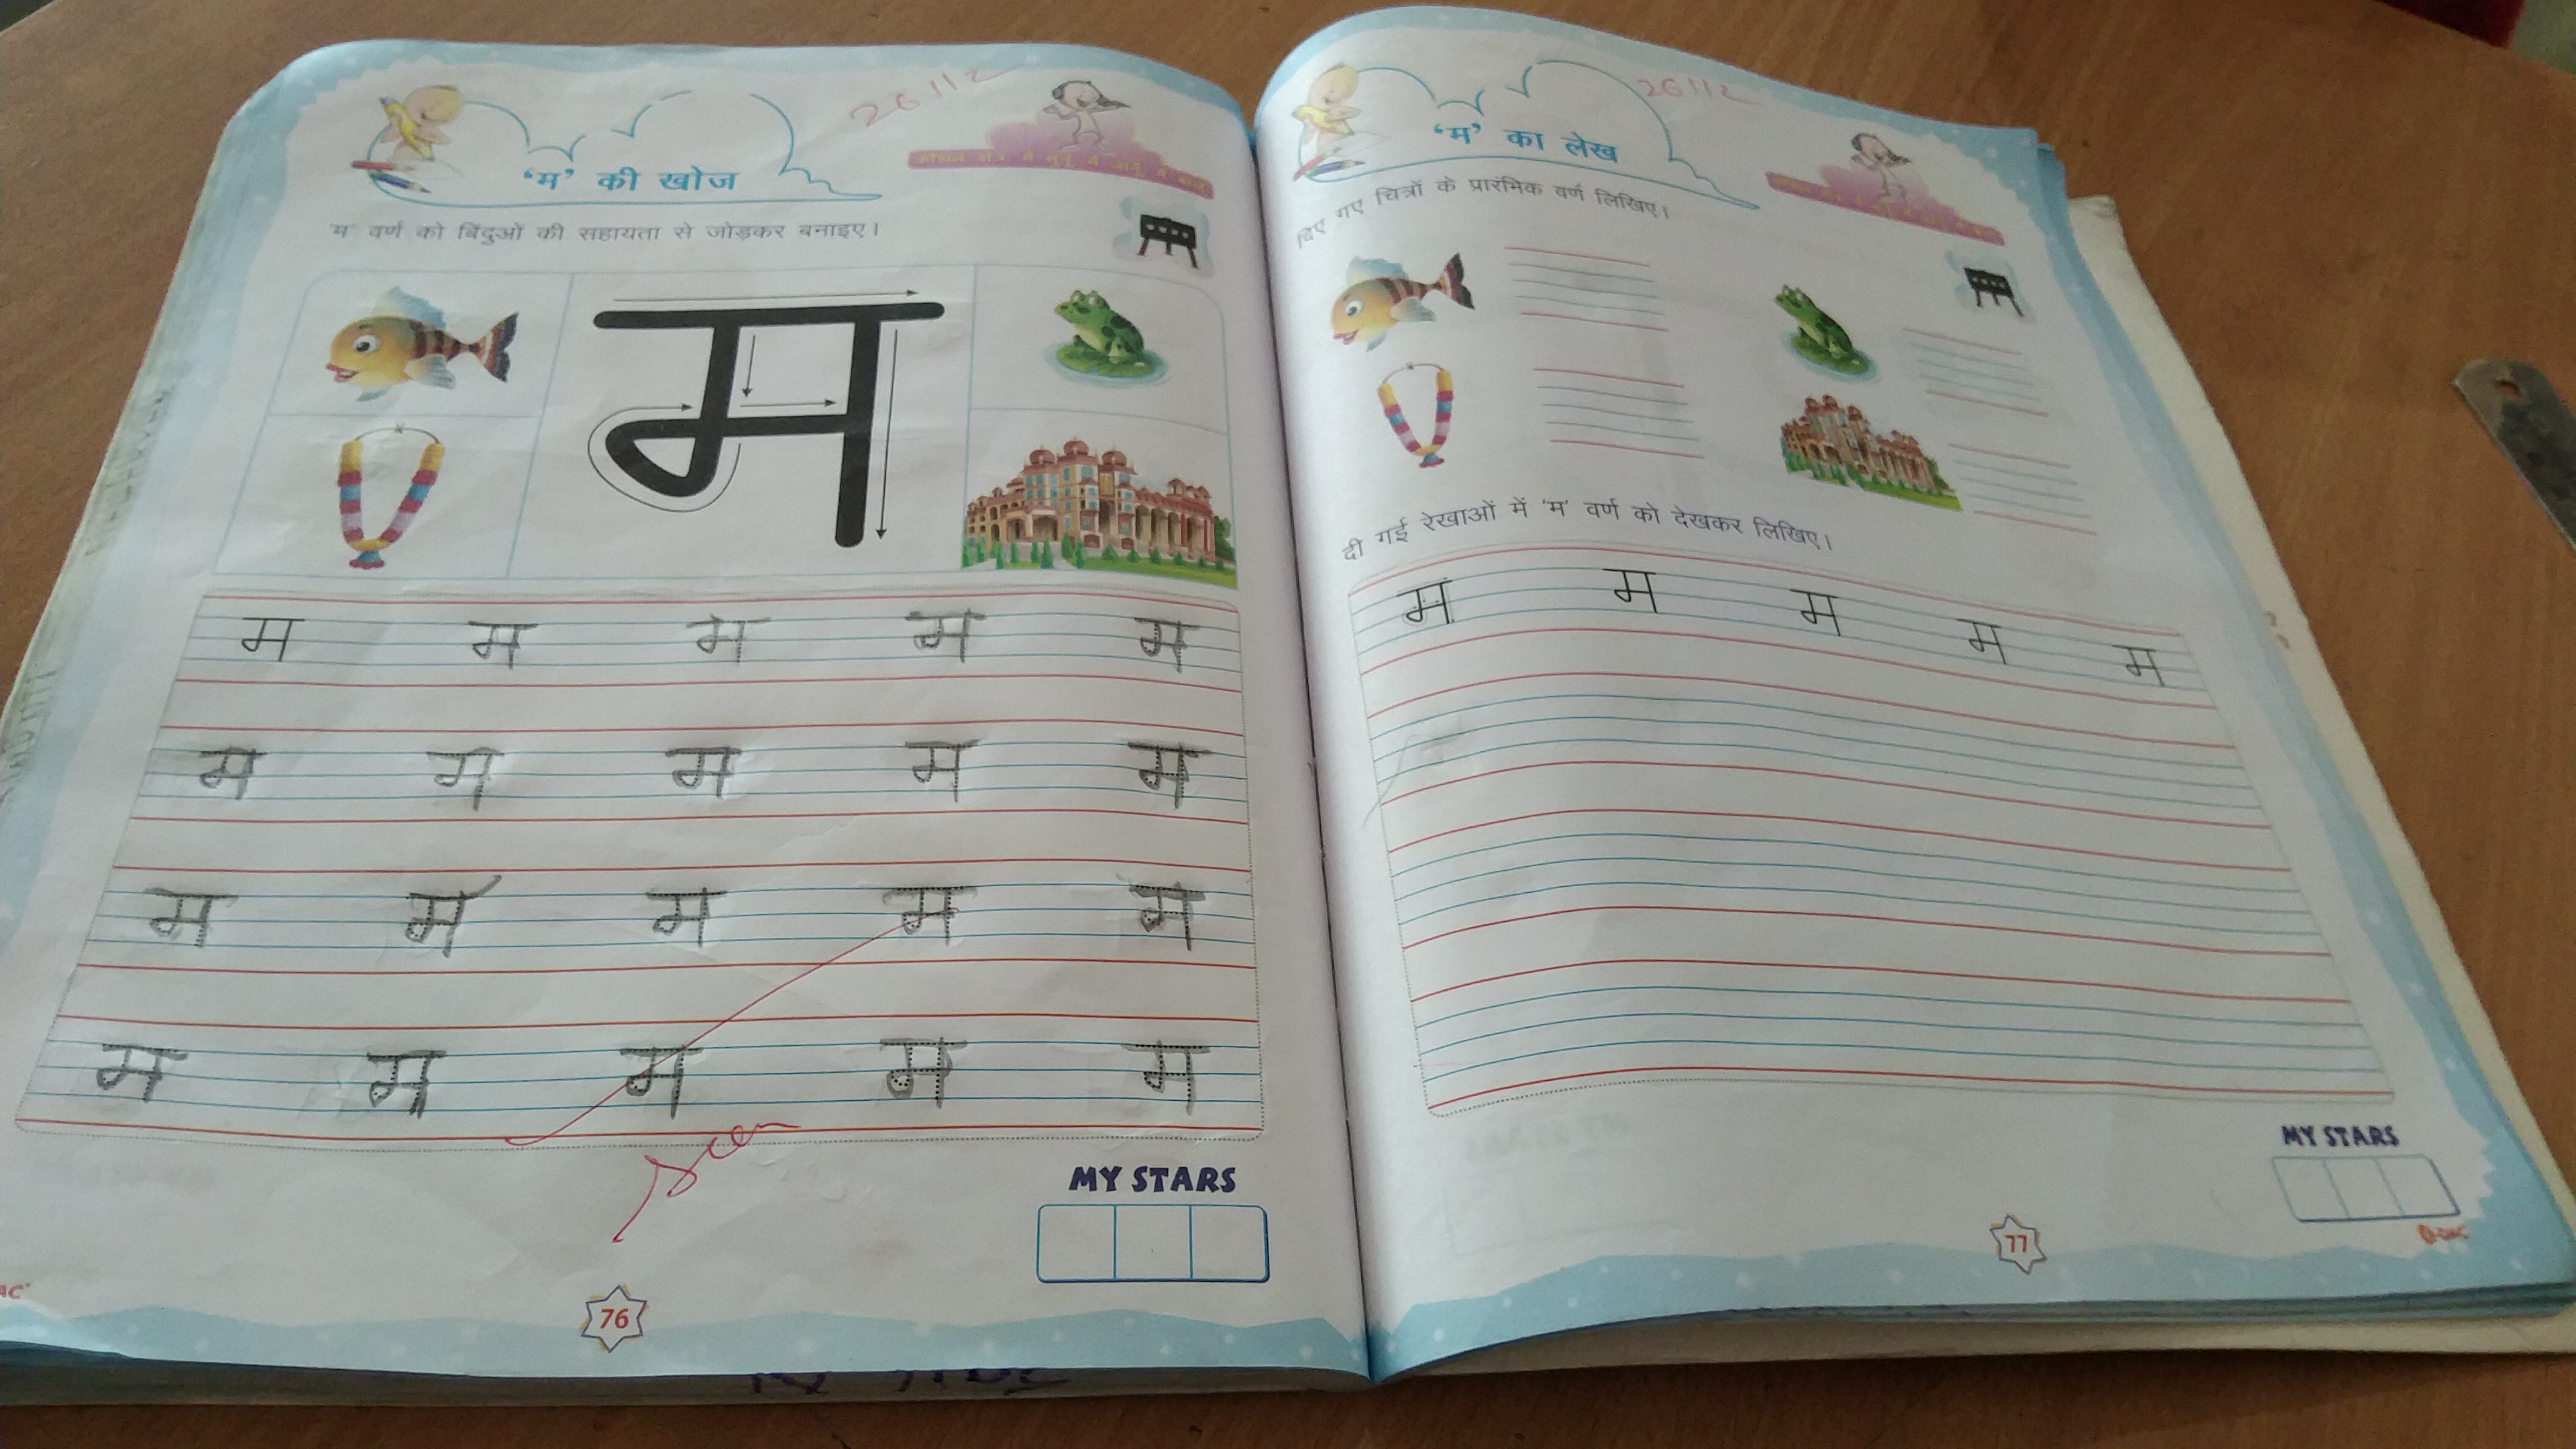 26112
'म' की खोज
'म' वर्ण को बिंदुओं की सहायता से जोड़कर बनाइए।
म
म म म म म
म म म म म
म म म म म
म म म म म
Seen
MY STARS
76
26112
'म' का लेख
दिए गए चित्रों के प्रारंमिक वर्ण लिखिए।
दी गई रेखाओं में 'म' वर्ण को देखकर लिखिए।
म म म म म
MY STARS
77